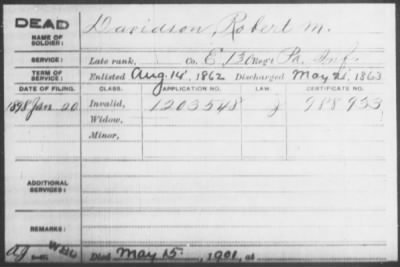 DEAD
NAME OF SOLDIER: Davidson, Robert M.
SERVICE: Late rank, Co. E, 130 Reg't Pa. Inf.
TERM OF SERVICE: Enlisted Aug. 14, 1862 Discharged May 21, 1863
DATE OF FILING. CLASS. APPLICATION NO. LAW CERTIFICATE NO.
1898 Jan 20 Invalid, 1203548 988953
Widow,
Minor,
ADDITIONAL SERVICES:
REMARKS:
Died May 15, 1901, at